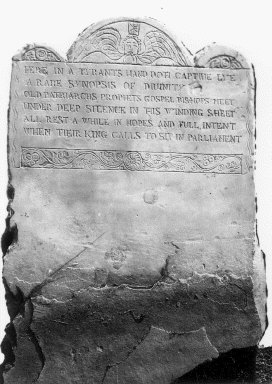 HERE IN A TYRANTS HAND DOTH CAPTIVE LYE
A RARE SYNOPSIS OF DIUINITYE
OLD PATRIARCHS PROPHETS GOSPEL BISHOPS MEET
UNDER DEEP SILENCE IN THIS WINDING SHEET
ALL REST A WHILE IN HOPES AND FULL INTENT
WHEN THEIR KING CALLS TO SIT IN PARLIAMENT